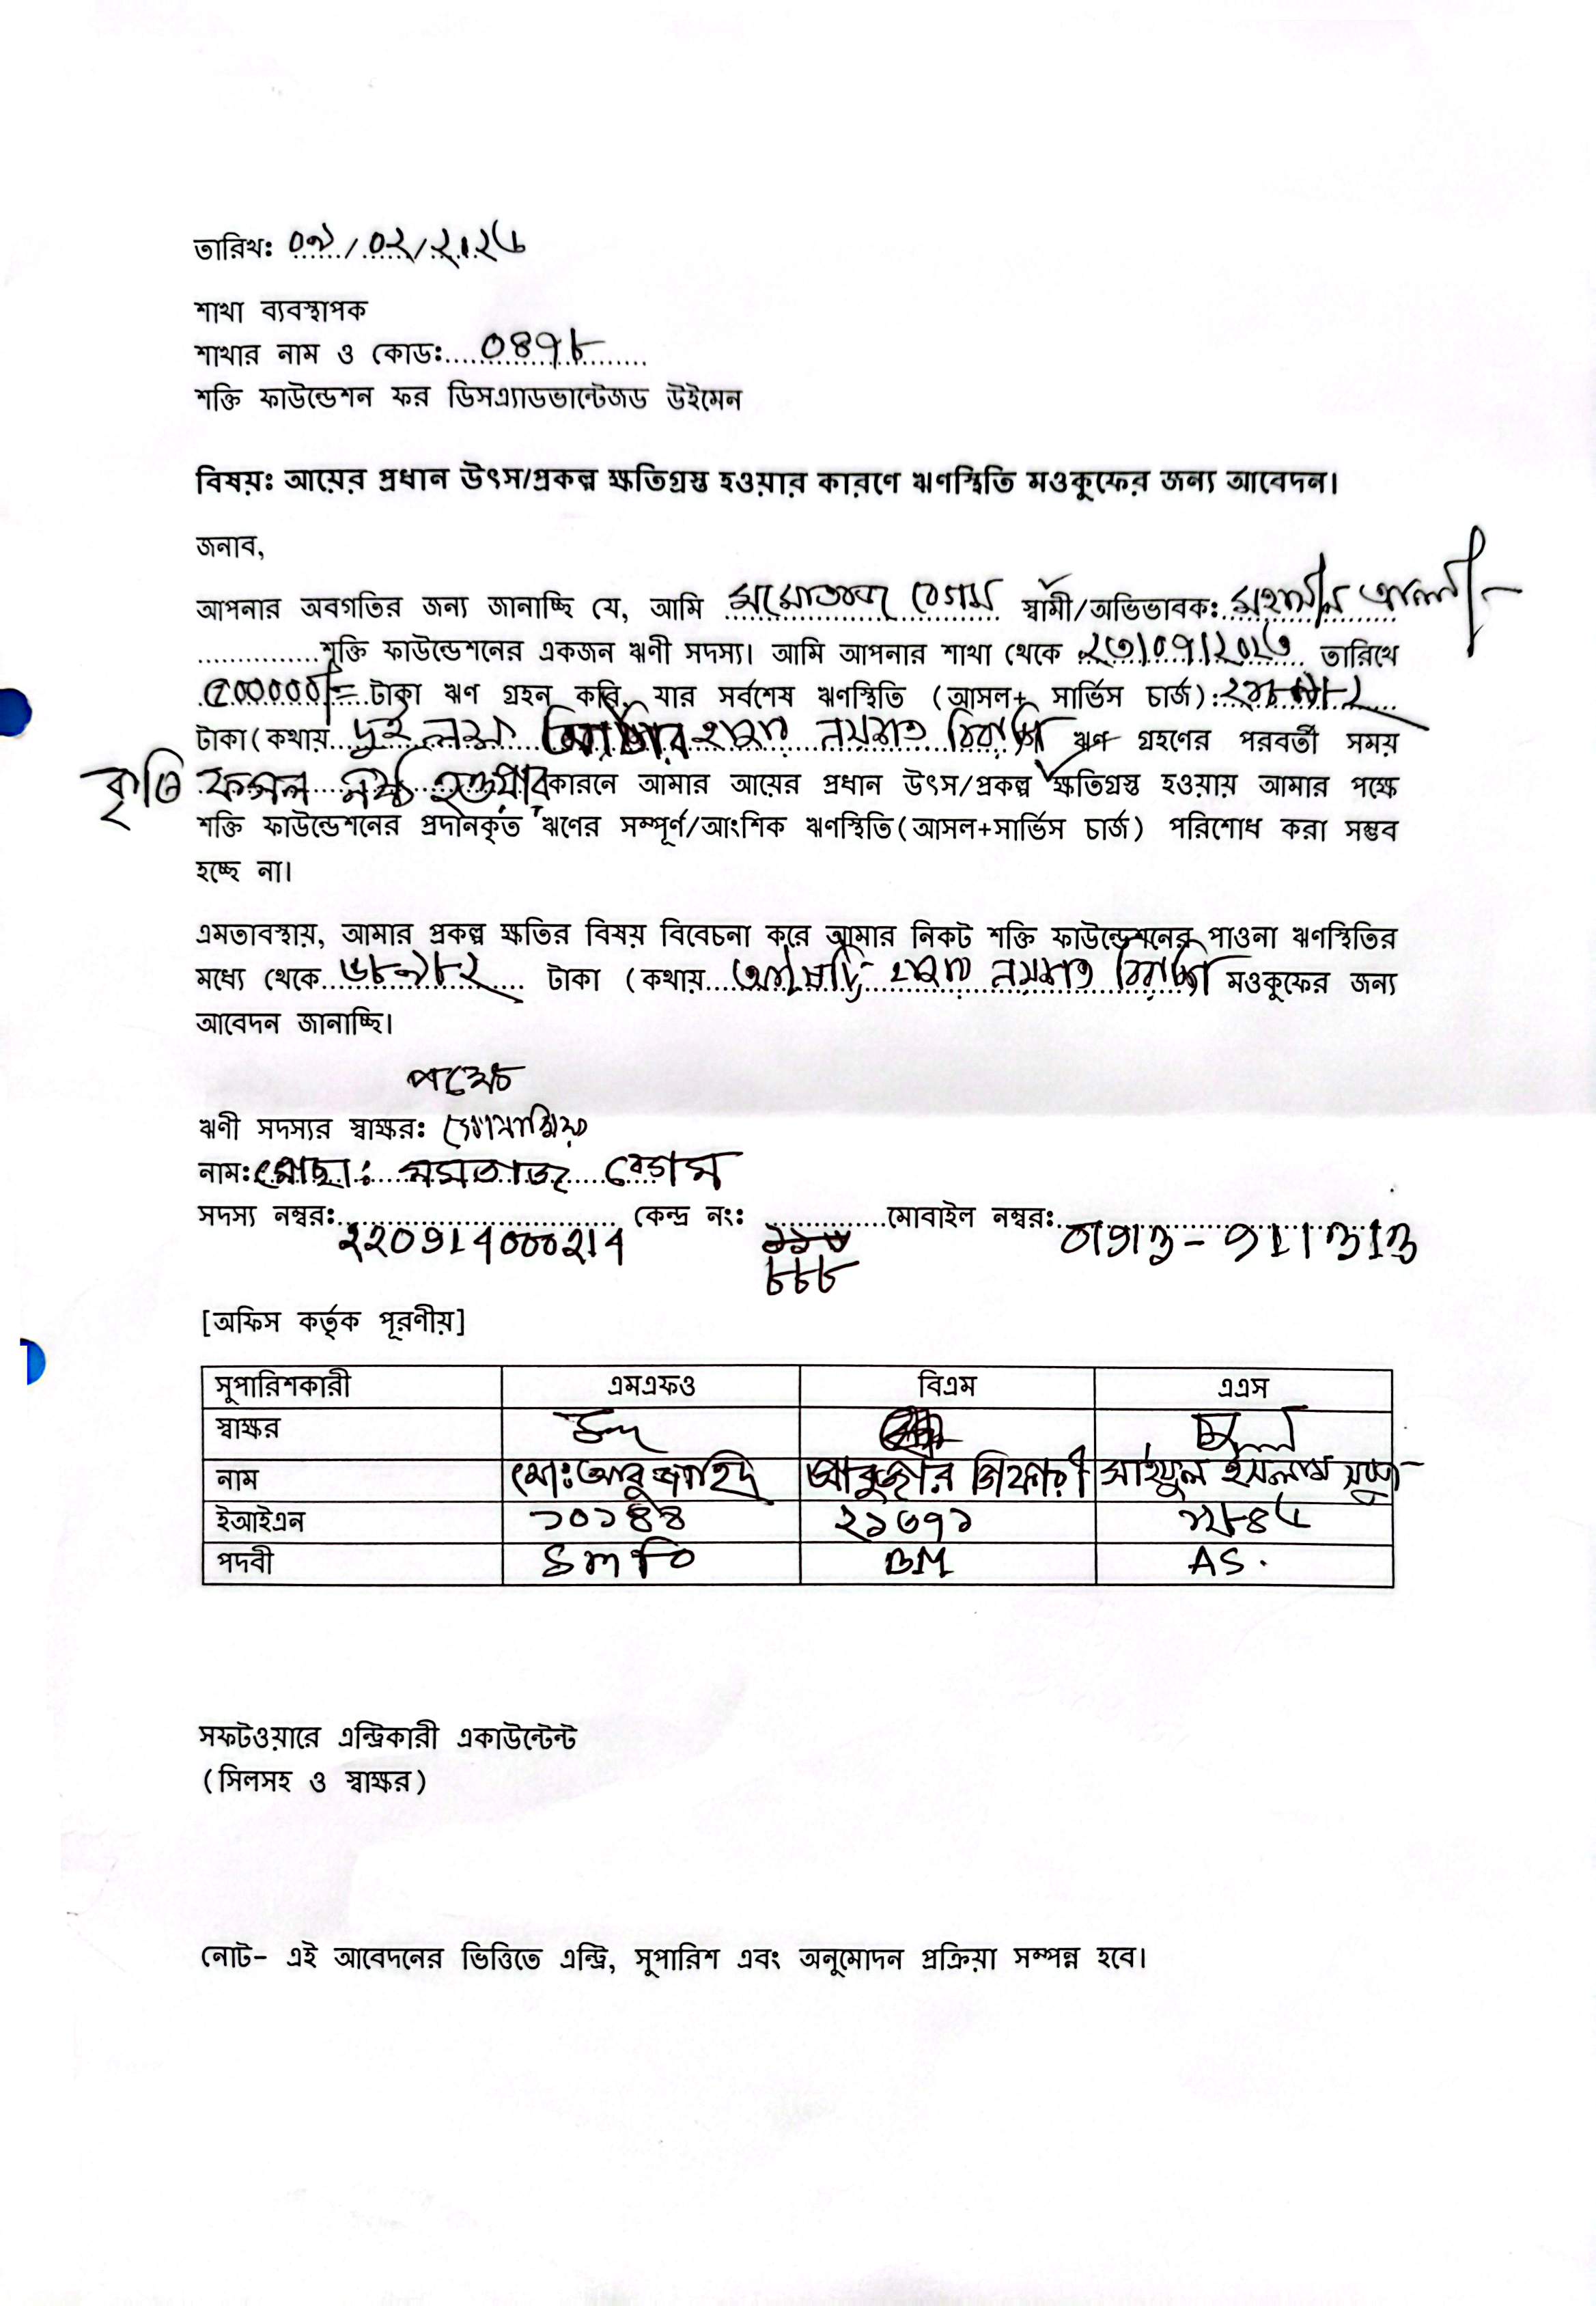 তারিখঃ ০৯/০২/২০২৫
শাখা ব্যবস্থাপক
শাখার নাম ও কোডঃ....০৪৭৮........
শক্তি ফাউন্ডেশন ফর ডিসএ্যাডভান্টেজড উইমেন
বিষয়ঃ আয়ের প্রধান উৎস/প্রকল্প ক্ষতিগ্রস্ত হওয়ার কারণে ঋণস্থিতি মওকুফের জন্য আবেদন।
জনাব,
আপনার অবগতির জন্য জানাচ্ছি যে, আমি মমোতাজ বেগম স্বামী/অভিভাবকঃ মহসীন আলী
...............শক্তি ফাউন্ডেশনের একজন ঋণী সদস্য। আমি আপনার শাখা থেকে ২৩/০৭/২০২৩ তারিখে
৫০০০০০/= টাকা ঋণ গ্রহন করি, যার সর্বশেষ ঋণস্থিতি (আসল+ সার্ভিস চার্জ):
টাকা(কথায় দুই লক্ষ হাজার নয়শত বিরাশি ঋণ গ্রহণের পরবর্তী সময়
কৃষি ফসল নষ্ট হওয়ার কারনে আমার আয়ের প্রধান উৎস/প্রকল্প ক্ষতিগ্রস্ত হওয়ায় আমার পক্ষে
শক্তি ফাউন্ডেশনের প্রদানকৃত ঋণের সম্পূর্ণ/আংশিক ঋণস্থিতি(আসল+সার্ভিস চার্জ) পরিশোধ করা সম্ভব
হচ্ছে না।
এমতাবস্থায়, আমার প্রকল্প ক্ষতির বিষয় বিবেচনা করে আমার নিকট শক্তি ফাউন্ডেশনের পাওনা ঋণস্থিতির
মধ্যে থেকে ৬৮৯৮২ টাকা (কথায় আটষট্টি হাজার নয়শত বিরাশি মওকুফের জন্য
আবেদন জানাচ্ছি।
পক্ষে
ঋণী সদস্যর স্বাক্ষরঃ
নামঃ মোছাঃ মমতাজ বেগম
সদস্য নম্বরঃ ২২০৭১৭০০০২১৭ কেন্দ্র নংঃ ৮৮৮ মোবাইল নম্বরঃ
[অফিস কর্তৃক পূরণীয়]
সুপারিশকারী এমএফও বিএম এএস
স্বাক্ষর
নাম মোঃ আবু জাহিদ আবুজার গিফারী সাইফুল ইসলাম
ইআইএন ১০১৪৪ ২১৩৭১
পদবী SMFO BM AS.
সফটওয়ারে এন্ট্রিকারী একাউন্টেন্ট
(সিলসহ ও স্বাক্ষর)
নোট- এই আবেদনের ভিত্তিতে এন্ট্রি, সুপারিশ এবং অনুমোদন প্রক্রিয়া সম্পন্ন হবে।